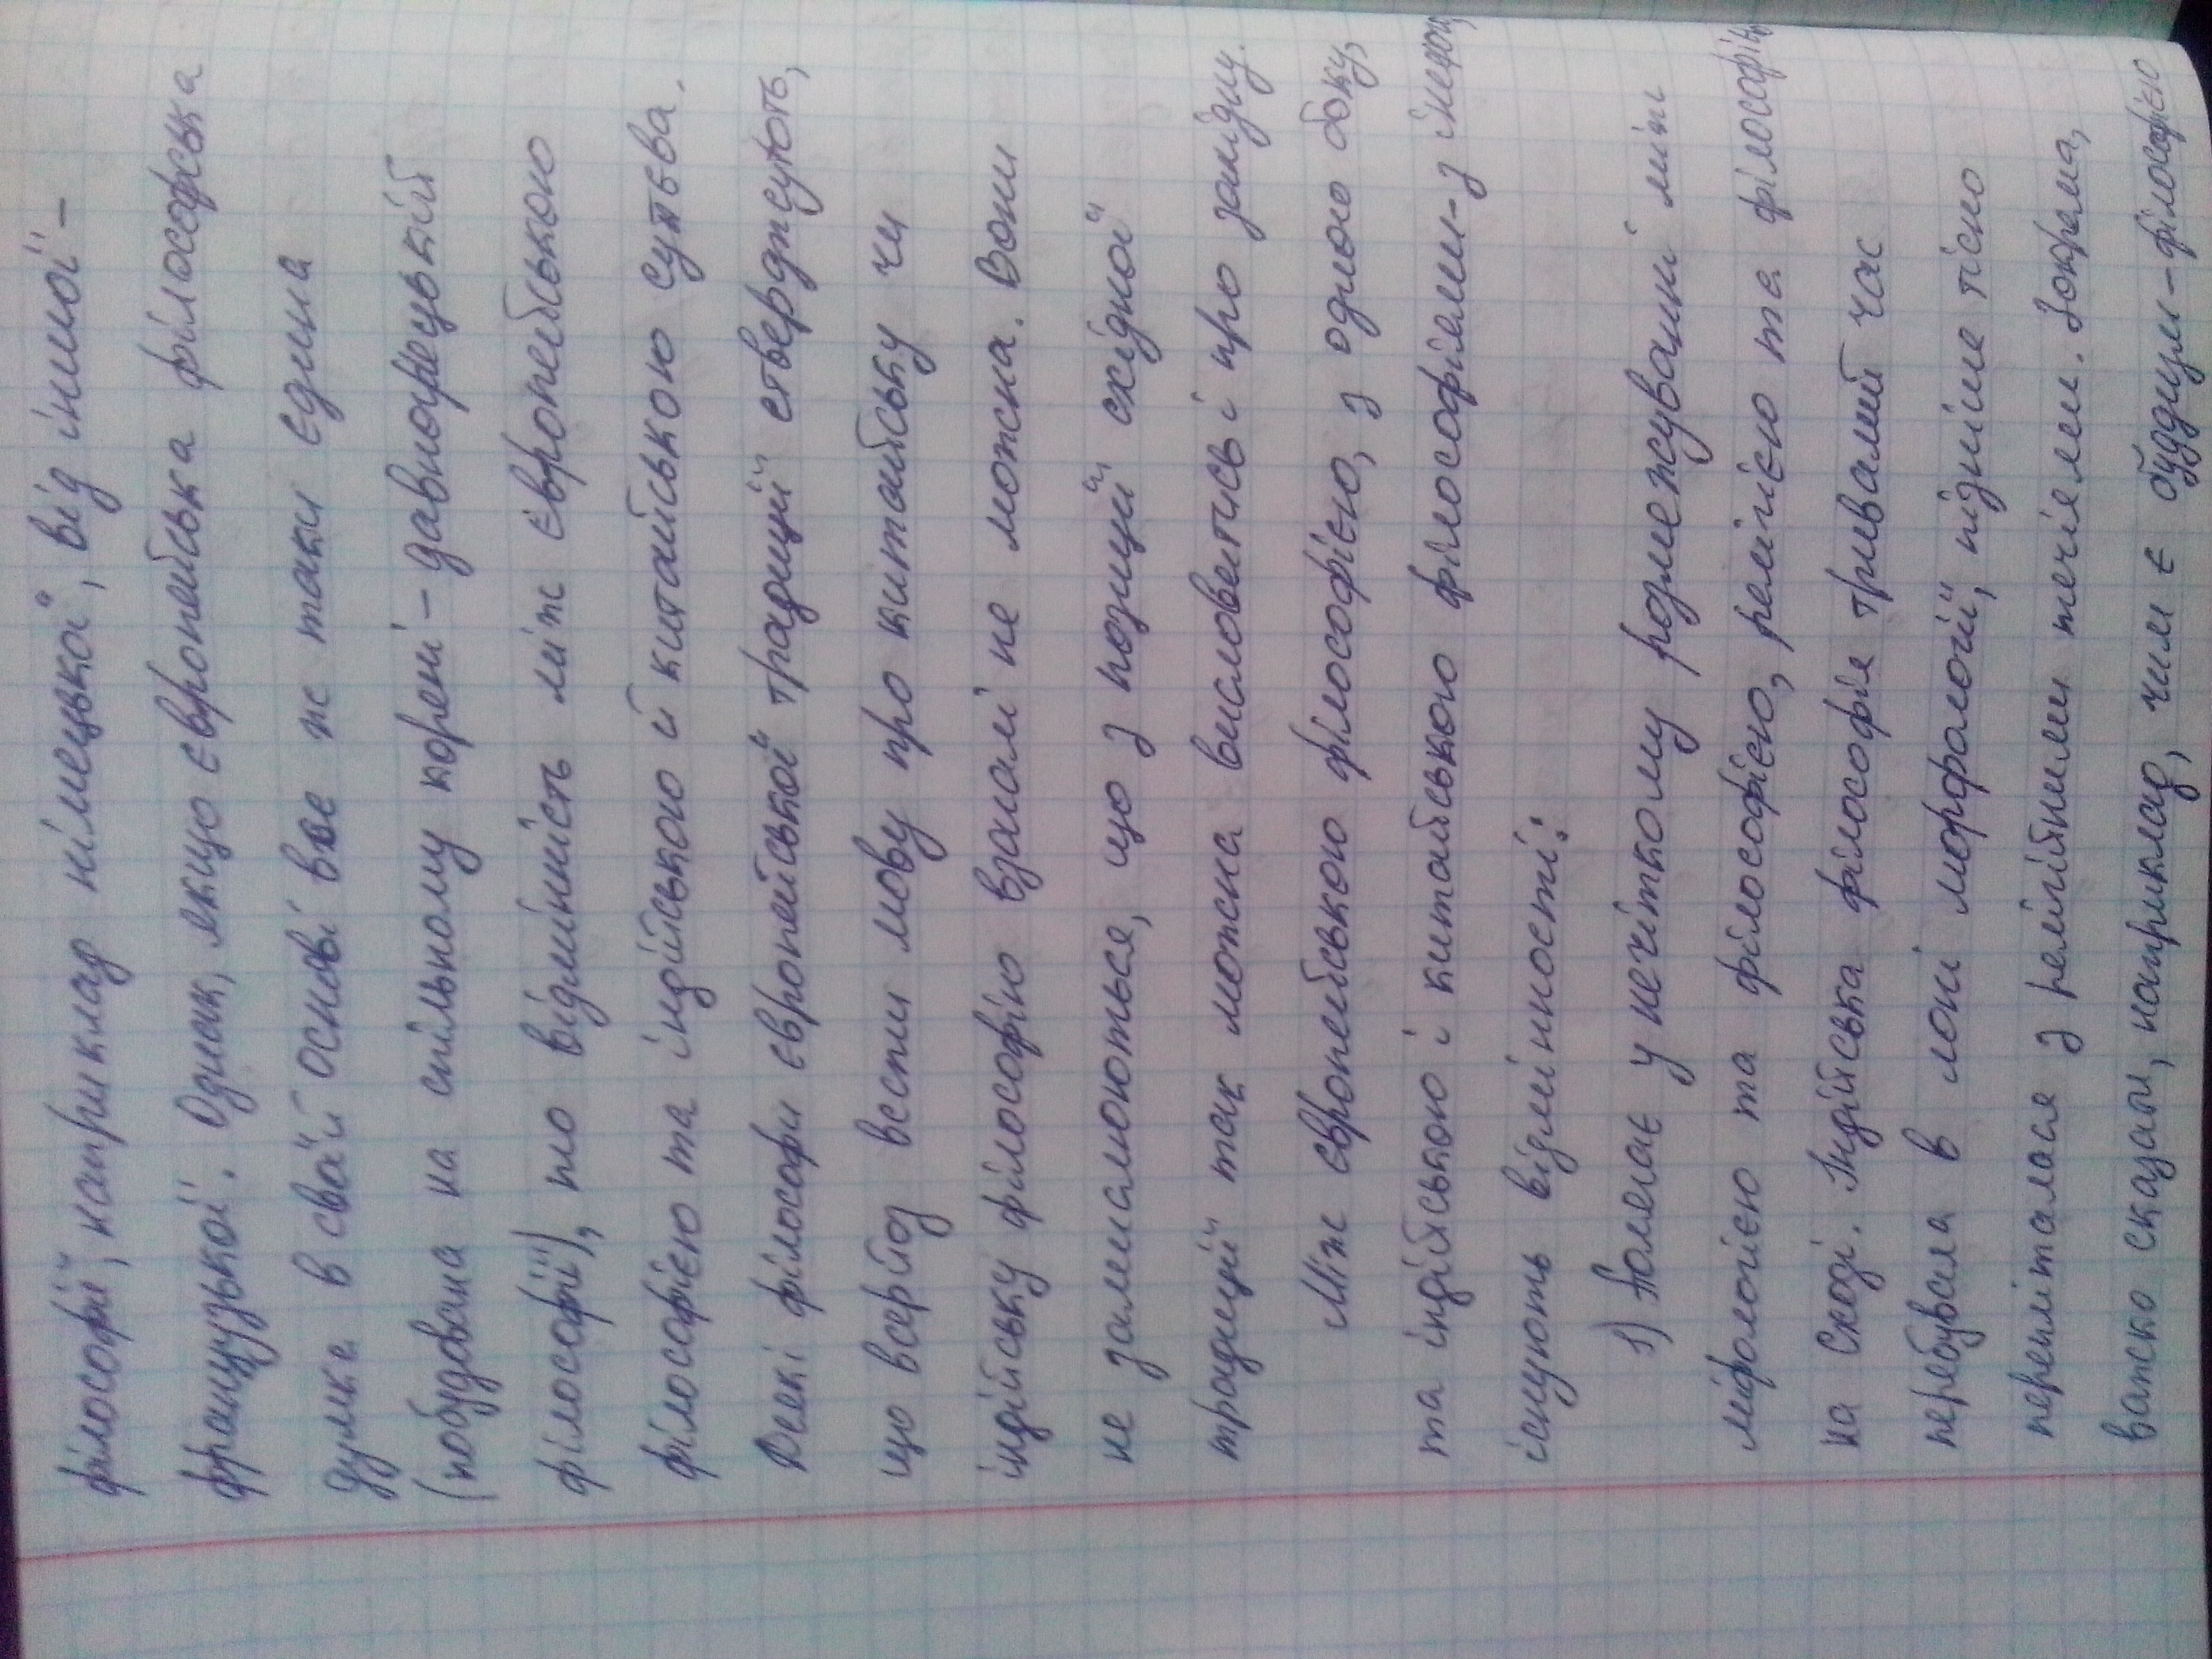 філософії, наприклад німецької, від іншої –
французької. Однак, якщо європейська філософська
думка в своїй основі все ж таки єдина
(побудована на спільному корені – давногрецькій
філософії), то відмінність між європейською
філософією та індійською й китайською суттєва.
Деякі філософи європейської традиції стверджують,
що всерйоз вести мову про китайську чи
індійську філософію взагалі не можна. Вони
не замислюються, що з позиції східної
традиції так можна висловитись і про західну.
Між європейською філософією, з одного боку,
та індійською і китайською філософіями – з іншого,
існують відмінності:
1) Полягає у нечіткому розмежуванні між
міфологією та філософією, релігією та філософією
на Сході. Індійська філософія тривалий час
перебувала в лоні морфології, пізніше тісно
перепліталася з релігійними течіями. Зокрема,
важко сказати, наприклад, чим є буддизм – філософією